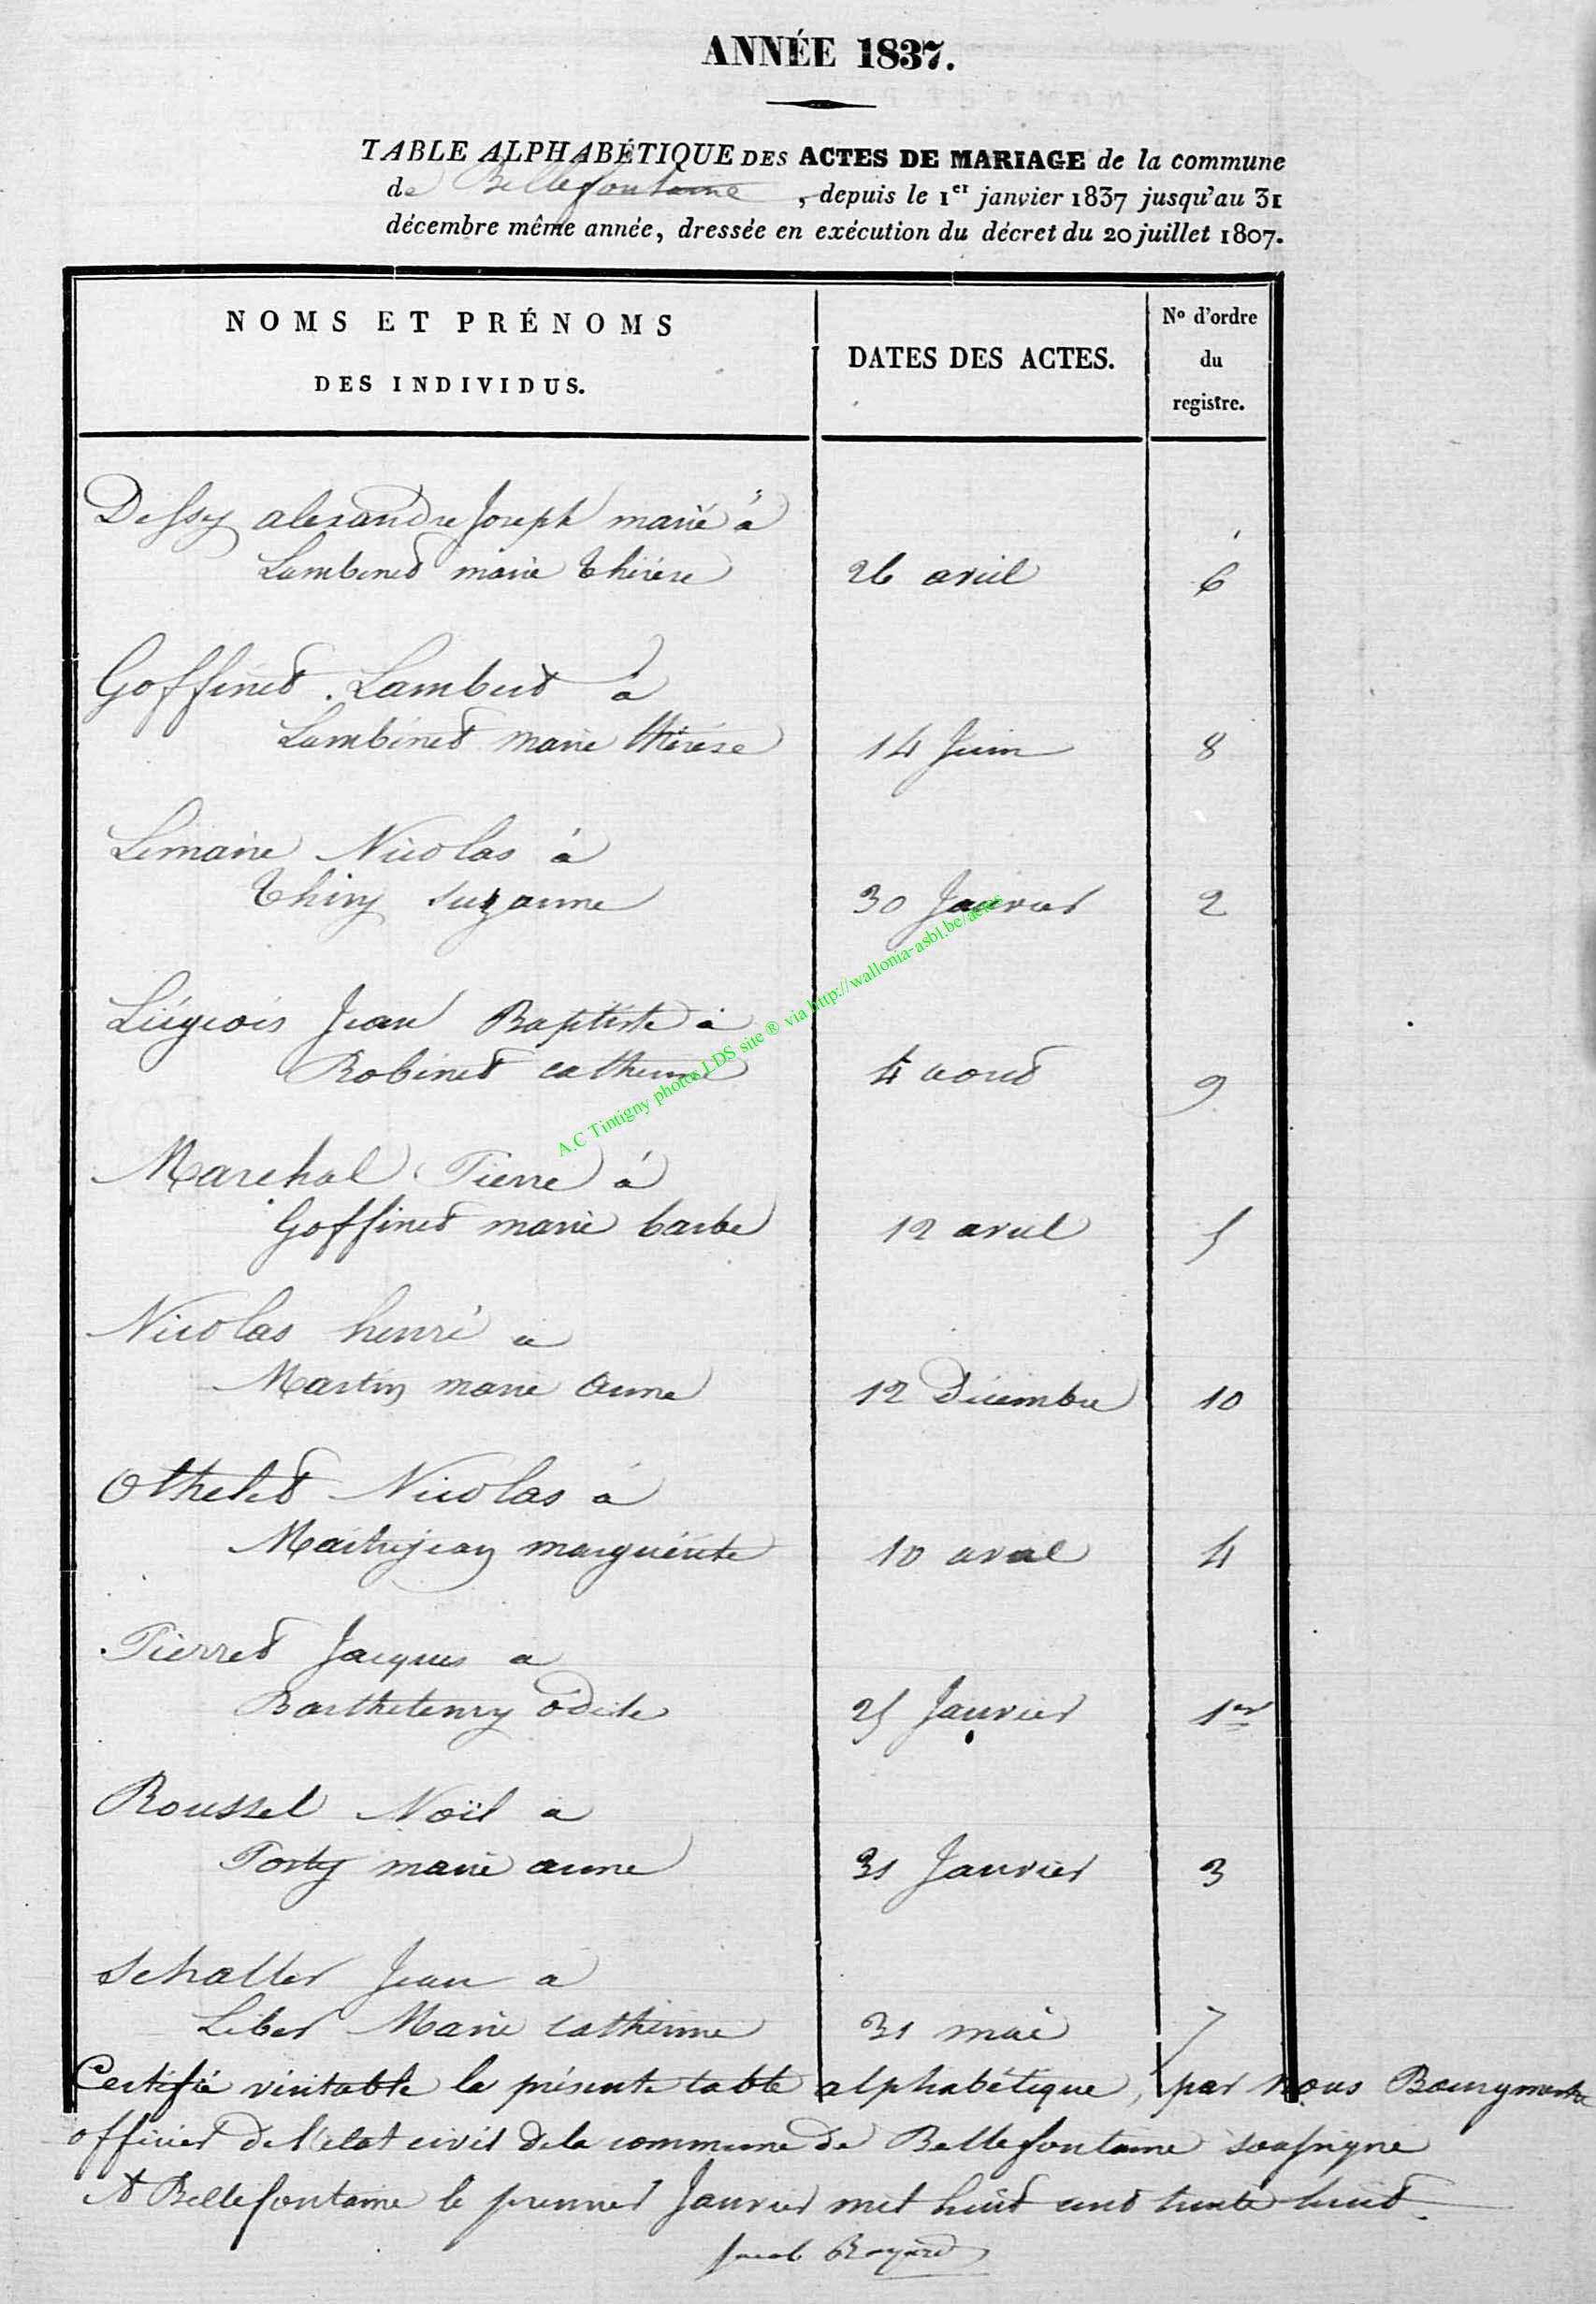 ANNÉE 1837.
TABLE ALPHABÉTIQUE DES ACTES DE MARIAGE de la commune
de Bellefontaine , depuis le 1er janvier 1837 jusqu'au 31
décembre même année, dressée en exécution du décret du 20 juillet 1807.
NOMS ET PRÉNOMS
DES INDIVIDUS.
DATES DES ACTES.
No d'ordre
du
registre.
Dessy alexandre Joseph marié à
Lambinet marie thérèse 26 avril 6
Goffinet Lambert à
Lambinet marie thérèse 14 Juin 8
Lemaire Nicolas à
Thiry suzanne 30 Janvier 2
Liégeois Jean Baptiste à
Robinet catherine 4 aout 9
Marechal Pierre à
Goffinet marie barbe 12 avril 5
Nicolas henri a
Martin marie anne 12 Décembre 10
Othelet Nicolas à
Maitrejean marguérite 10 avril 4
Pierret Jacques a
Barthelemy odile 25 Janvier 1er
Roussel Noël a
Posty marie anne 31 Janvier 3
Schaller Jean a
Liber Marie catherine 31 mai 7
Certifié véritable la présente table alphabétique, par nous Bourgmestre
officier de l'état civil de la commune de Bellefontaine soussigné
A Bellefontaine le premier Janvier mil huit cent trente huit.
A.C Tintigny photos LDS site ® via http://wallonia-asbl.be/actes